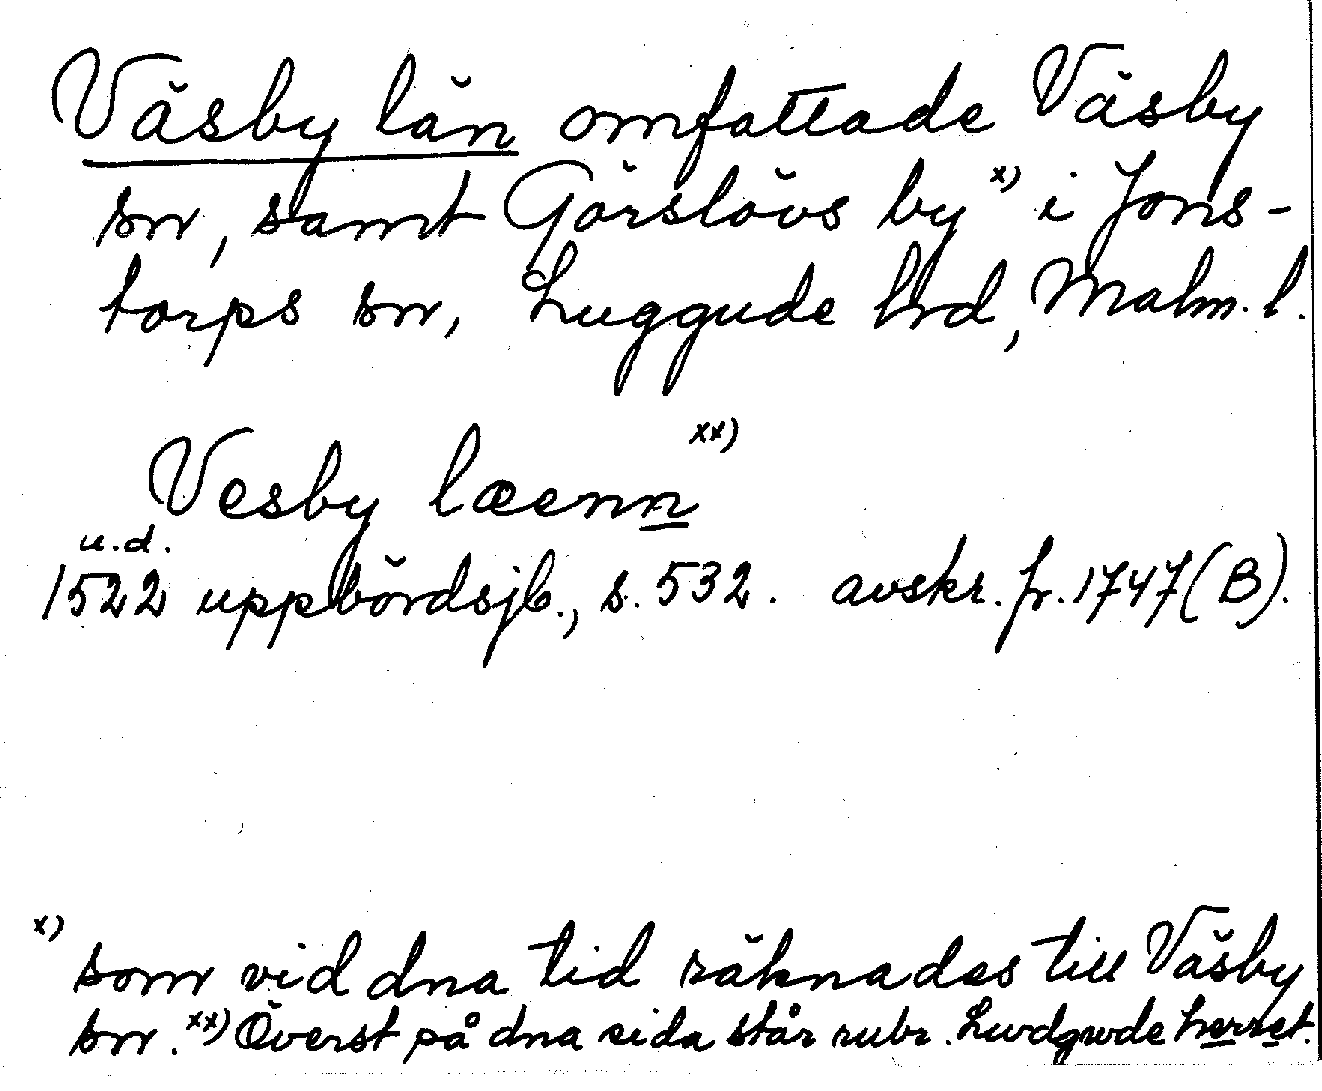 Väsby län omfattade Väsby
sn, samt Görslövs by x) i Jons-
torps sn, Luggude hrd, Malm. l.
Vesby læenn xx)
u.d.
1522 uppbördsjb., s. 532. avskr. fr. 1747 (B).
x) som vid dna tid räknades till Väsby
sn. xx) Överst på dna sida står rubr. Lwdgwde herret.